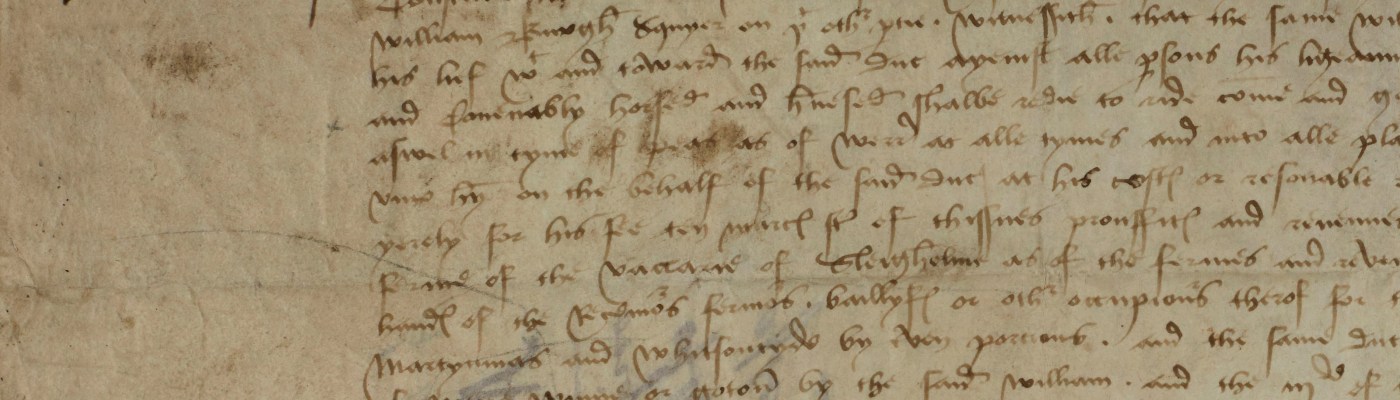 William Squyer on þt oth ptie. Witnessith. that the same
his lief wt and toward the said Duc ayeinst alle psons his ligeaun
and couenably horsed and hnesed shalbe redie to ride come and
aswel in tyme of peas as of werr at alle tymes and into alle pla
vnto hy on the behalf of the said Duc at his costes or resonable
yerely for his fee ten marcs st of thissues prouffites and revenue
ferme of the vaccarie of Sleighelm as of the fermes and reven
handes of the Receuors fermors. baillyfs or othr occupiours therof for
Martynmas and Whitsontyde by even porcions. and the same Duc
or goton by the said William. and the iijde of